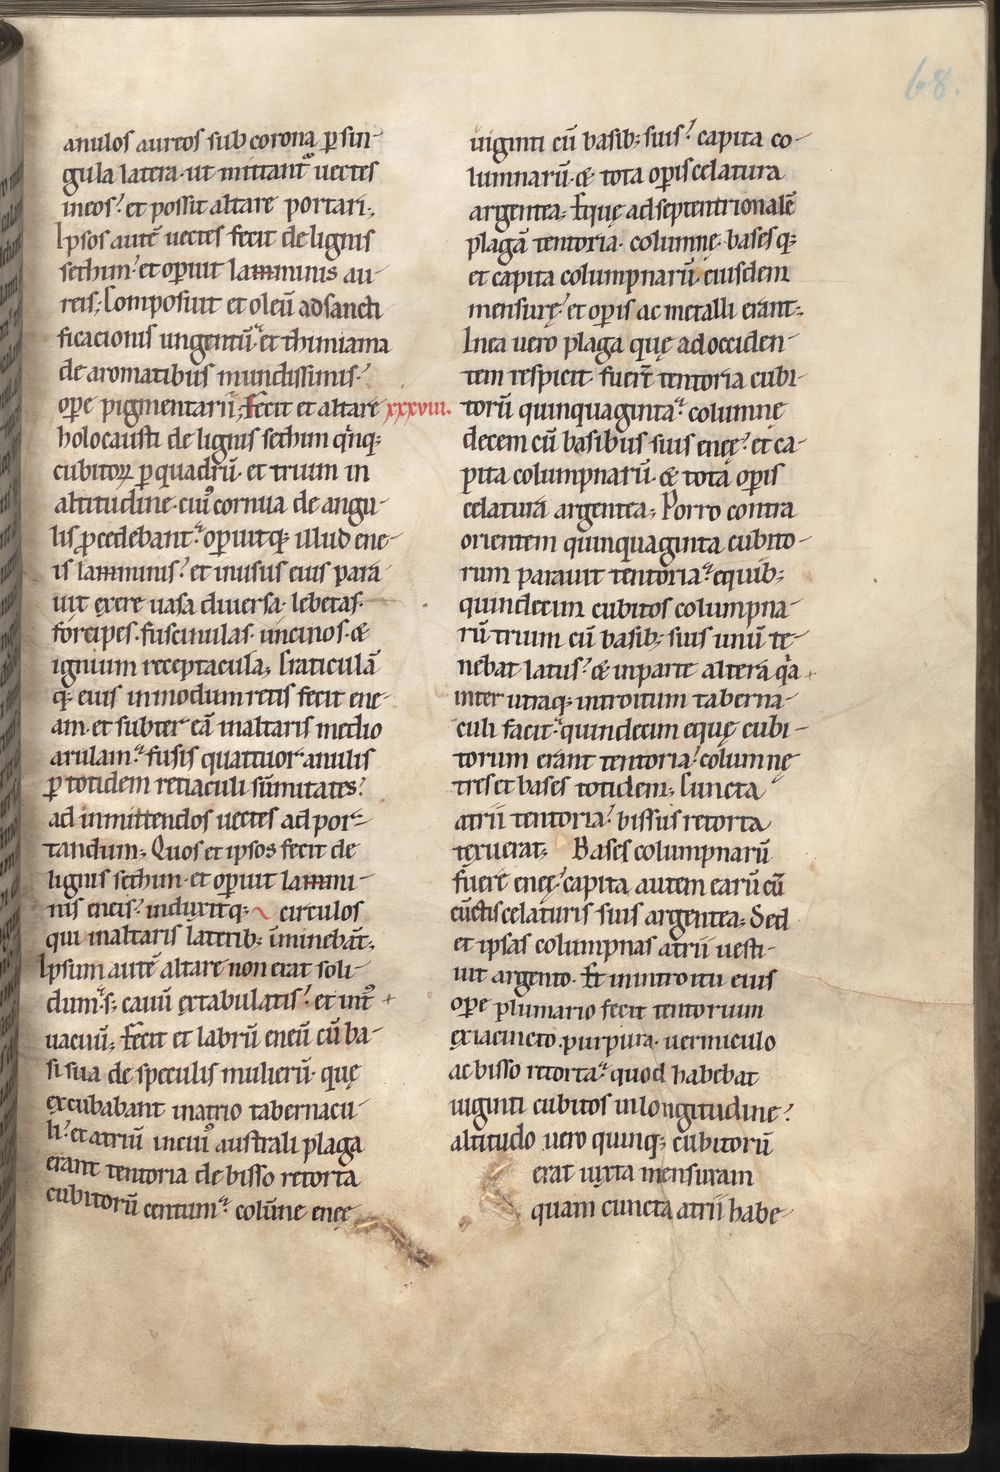 68.
anulos aureos sub corona p̱ sin-
gula latera· ut mittant᷑ uectes
in eos? et possit altare portari;
Ipsos autē uectes fecit de lignis
sethim· et op̱uit lamminis au-
reis; Composuit et oleū ad sancti-
ficacionis ungentū· et thimiama
de aromatibus mundissimis·
op̱e pigmentarii; Fecit et altare xxxviii.
holocausti de lignis sethim q̇nq;
cubitoꝝ p̱ quadrū· et trium in
altitudine· cui᷒ cornua de angu-
lis ꝓcedebant· op̱uitq; illud ene-
is lamminis? et in usus eius para-
uit ex ere uasa diuersa· lebetas·
forcipes· fuscinulas· uncinos· &
ignium receptacula; Craticulā
q; eius in modum retis fecit ene-
am· et subter eā in altaris medio
arulam· fusis quattuor anulis
p̱ totidem retiaculi sūmitates?
ad inmittendos uectes ad por-
tandum; Quos et ipsos fecit de
lignis sethim· et op̱uit lammi-
nis eneis? induxitq; circulos
qui in altaris laterib; ūminebāt;
Ipsum autē altare non erat soli-
dum· s; cauū ex tabulatis? et int᷒
uacuū; Fecit et labrū eneū cū ba-
si sua de speculis mulierū· quę
excubabant in atrio tabernacu-
li? et atriū in cui᷒ australi plaga
erant tentoria de bisso retorta
cubitorū centum· colūne eneę
uiginti cū basib; suis? capita co-
lumnarū· & tota op̱is celatura
argentea; Ęque ad septentrionalē
plagā tentoria· columnę· bases q;
et capita columpnarū· eiusdem
mensurę? et op̱is ac metalli erant;
In ea uero plaga quę ad occiden-
tem respicit· fuer̄ tentoria cubi-
torū quinquaginta· columnę
decem cū basibus suis eneę? et ca-
pita columpnarū· & tota op̱is
celatura argentea; Porro contra
orientem quinquaginta cubito-
rum parauit tentoria· e quib;
quindecim cubitos columpna-
rū trium cū basib; suis unū te-
nebat latus? & in parte altera q̇a
inter utraq; introitum taberna-
culi facit· quindecim eque cubi-
torum erant tentoria? columnę
tres et bases totidem; Cuncta
atrii tentoria? bissus retorta
texuerat; Bases columpnarū
fuere eneę? capita autem earū cū
cūctis celaturis suis argentea; Sed
et ipsas columpnas atrii uesti-
uit argento· Et in introitu eius
op̱e plumario fecit tentorium
ex iacincto· purpura· uermiculo
ac bisso retorta· quod habebat
uiginti cubitos in longitudine?
altitudo uero quinq; cubitorū
erat iuxta mensuram
quam cuncta atrii habe-